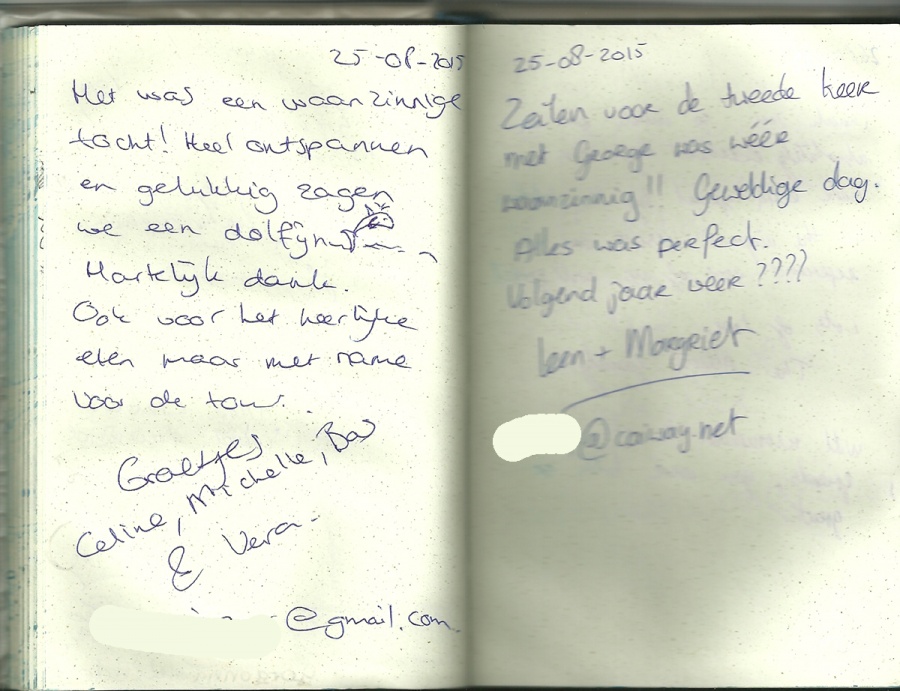 25-08-2015
Het was een waanzinnige
tocht! Heel ontspannen
en gelukkig zagen
we een dolfijn
Hartelijk dank.
Ook voor het heerlijke
eten maar met name
voor de tour.
Groetjes
Celine, Michelle, Bas
& Vera.
@gmail.com
25-08-2015
Zeilen voor de tweede keer
met George was wéér
waanzinnig!! Geweldige dag.
Alles was perfect.
Volgend jaar weer ????
Leen + Margriet
@caiway.net